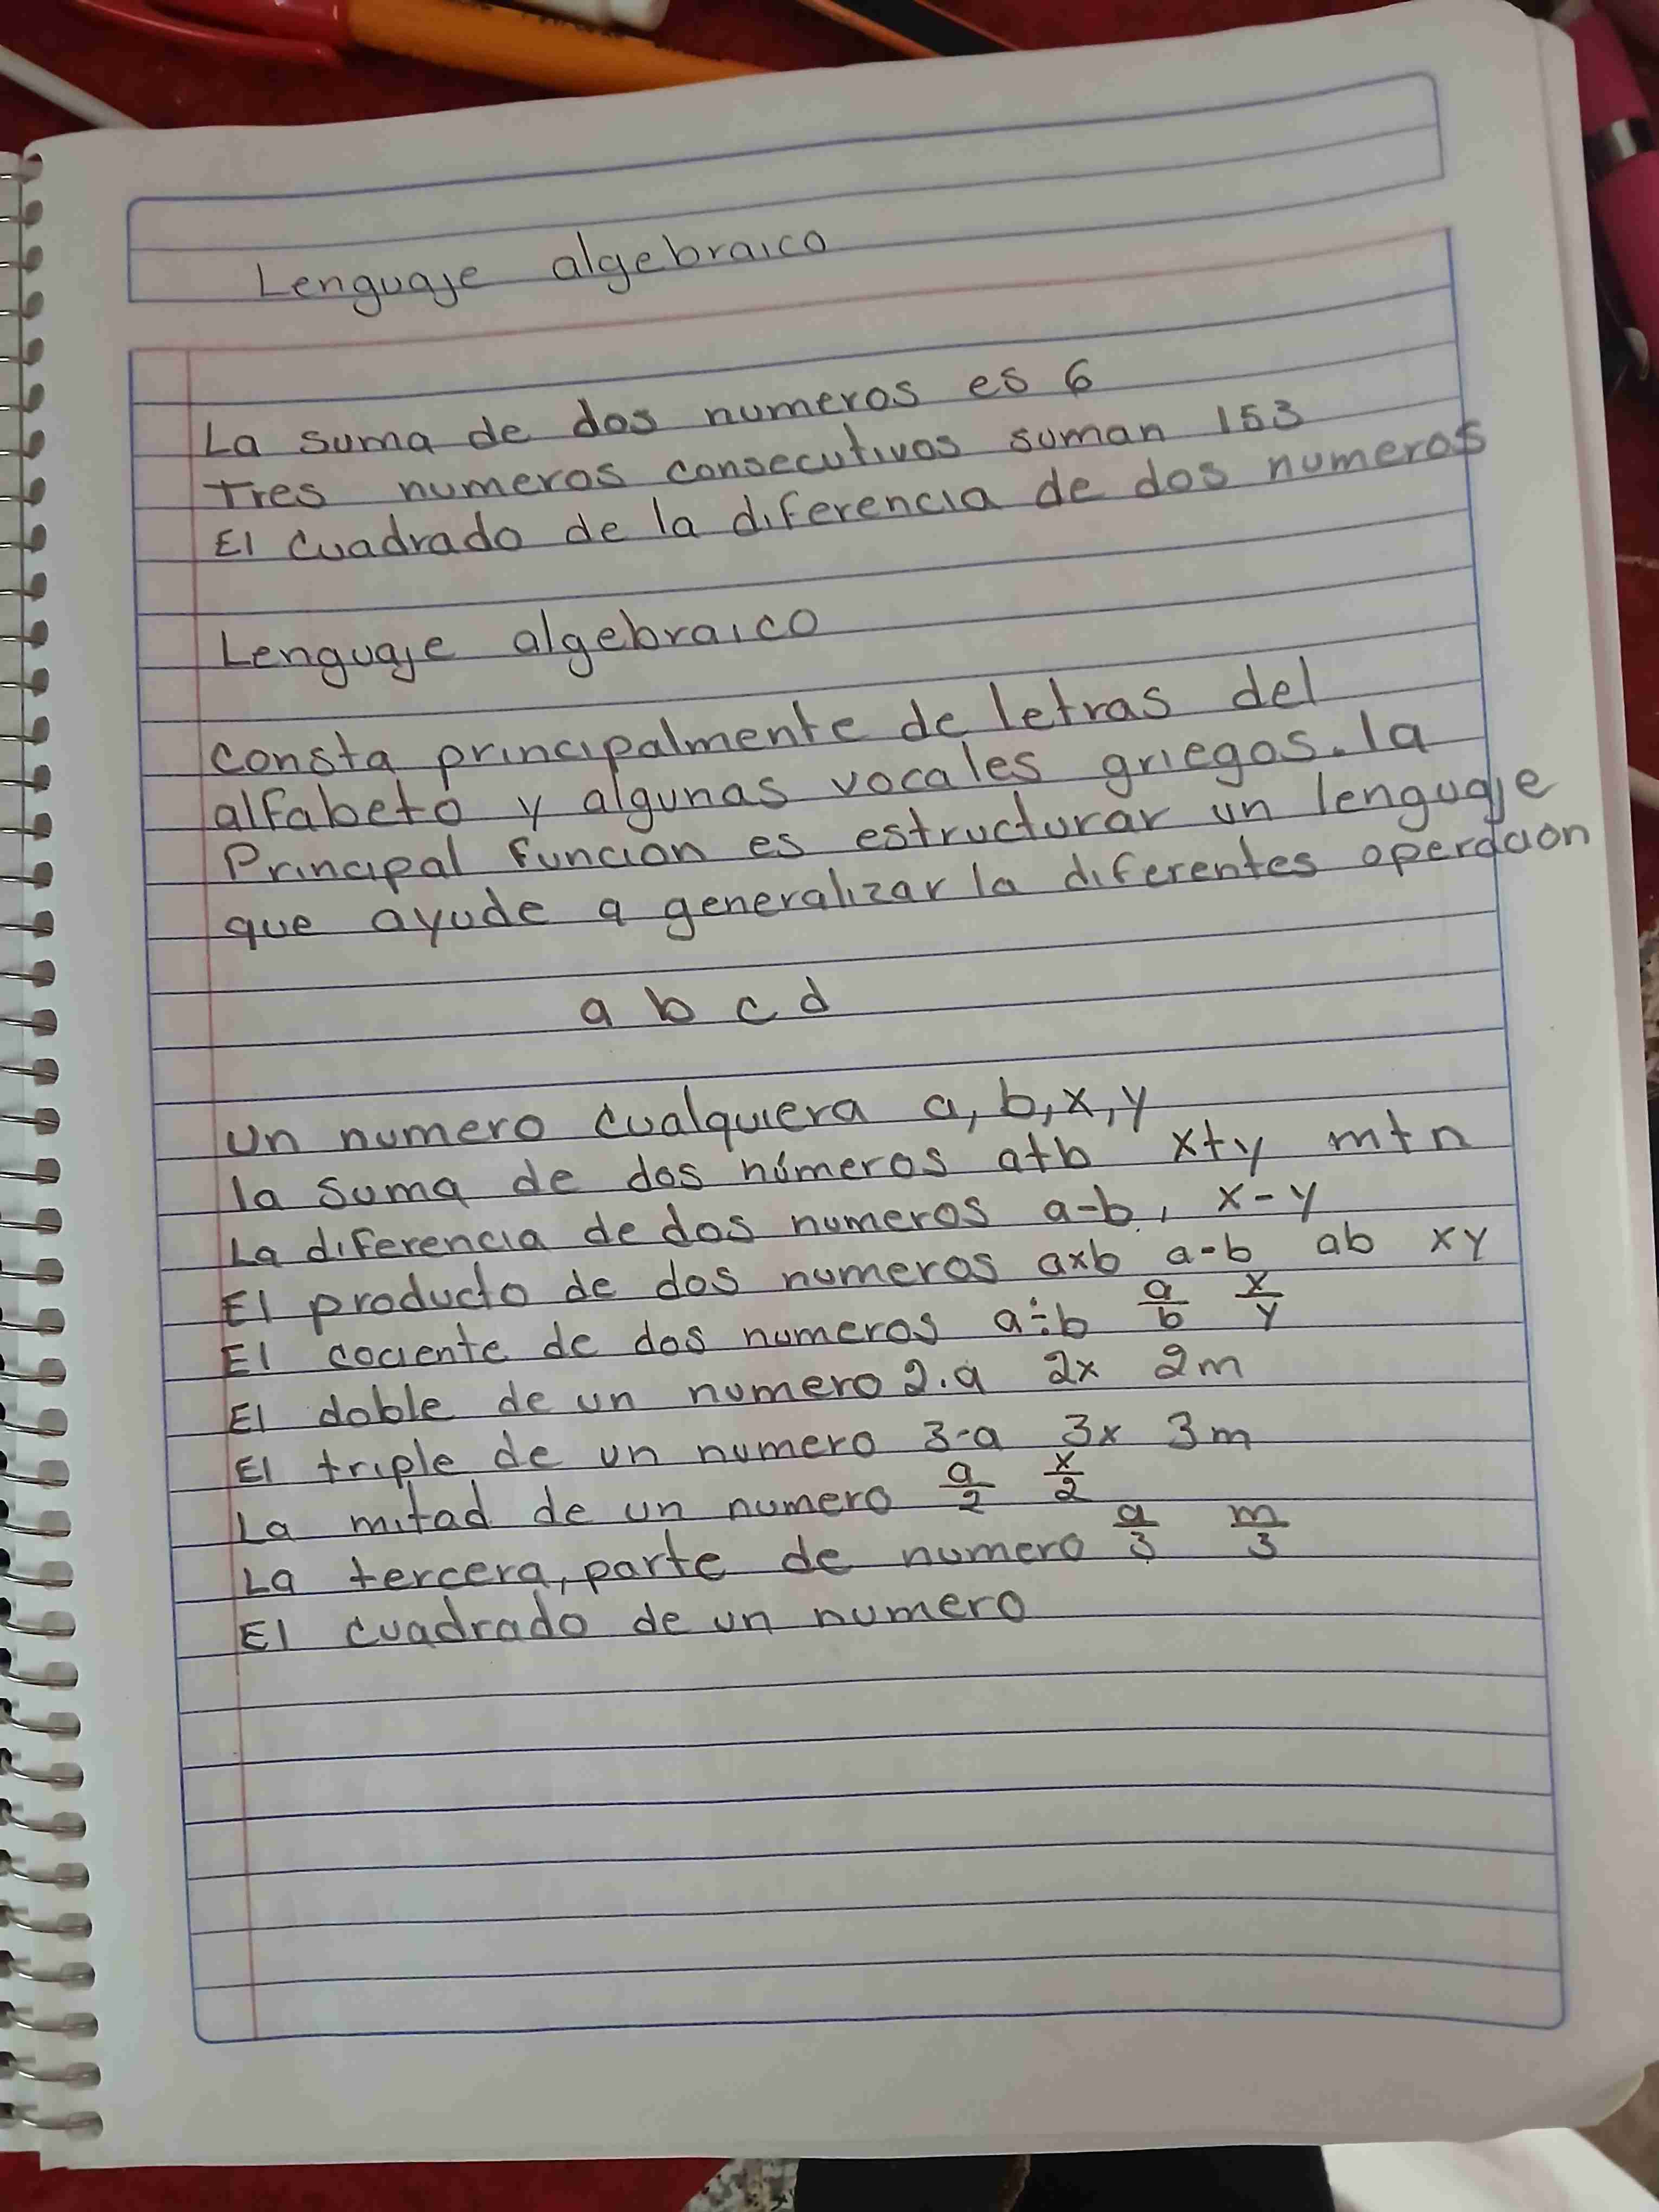 Lenguaje algebraico
La suma de dos numeros es 6
Tres numeros consecutivos suman 153
El cuadrado de la diferencia de dos numeros
Lenguaje algebraico
consta principalmente de letras del
alfabeto y algunas vocales griegos. la
Principal funcion es estructurar un lenguaje
que ayude a generalizar la diferentes operacion
a b c d
un numero cualquiera a, b, x, y
la suma de dos números a+b x+y m+n
La diferencia de dos numeros a-b, x-y
El producto de dos numeros axb a·b ab xy
El cociente de dos numeros a÷b a/b x/y
El doble de un numero 2.a 2x 2m
El triple de un numero 3·a 3x 3m
La mitad de un numero a/2 x/2
La tercera, parte de numero a/3 m/3
El cuadrado de un numero